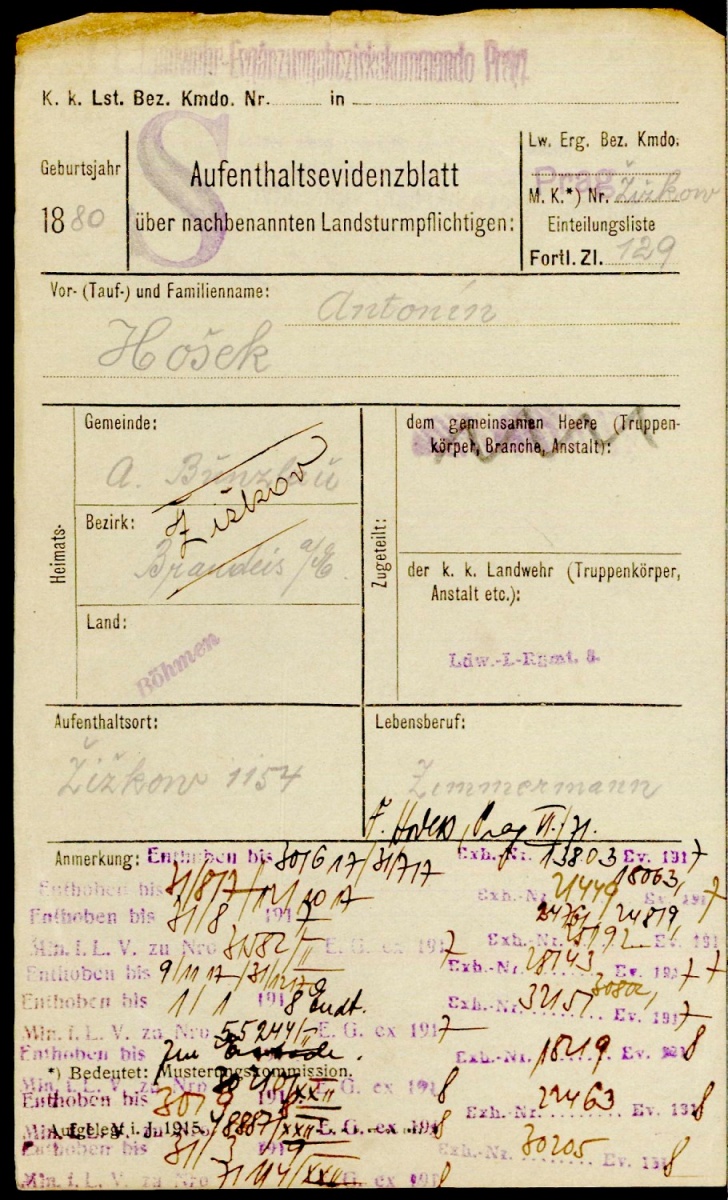 k. k. Landwehr-Ergänzungsbezirkskommando Prag
K. k. Lst. Bez. Kmdo. Nr. in
S
Geburtsjahr
1880
Aufenthaltsevidenzblatt
über nachbenannten Landsturmpflichtigen:
Lw. Erg. Bez. Kmdo:
Prag
M. K.*) Nr. Žižkow
Einteilungsliste
Fortl. Zl. 129
Vor- (Tauf-) und Familienname:
Antonín
Hošek
Heimats-
Gemeinde:
A. Bunzlau
Žižkov
Bezirk:
Brandeis a/E.
Land:
Böhmen
Zugeteilt:
dem gemeinsamen Heere (Truppen-
körper, Branche, Anstalt):
der k. k. Landwehr (Truppenkörper,
Anstalt etc.):
Ldw.-I.-Rgmt. 8.
Aufenthaltsort:
Žižkow 1154
Lebensberuf:
Zimmermann
Prag VI./71.
Anmerkung: Enthoben bis 30/6 17/31/717 Exh.-Nr. 13803 Ev. 1917
Enthoben bis 31/817 Exh.-Nr. 21449 18063, Ev. 1917
Enthoben bis 31/8 1917 24819,
Min. f. L. V. zu Nro E. G. ex 1917 Exh.-Nr. Ev. 1917
Enthoben bis 9/11 17 Exh.-Nr. 28143 Ev. 1917
Enthoben bis 1/1 1918 Exh.-Nr. 32151 Ev. 1917
Min. f. L. V. zu Nro 55244 E. G. ex 1917
Enthoben bis Exh.-Nr. 18219 Ev. 1918
*) Bedeutet: Musterungskommission.
Min. f. L. V. zu Nro E. G. ex 1918
Enthoben bis 30/9 1918 Exh.-Nr. 22463 Ev. 1918
Aufgelegt i. J. 1915.
Min. f. L. V. zu Nro E. G. ex 1918
Enthoben bis 31/3 1919 Exh.-Nr. 30205 Ev. 1918
Min. f. L. V. zu Nro E. G. ex 1918